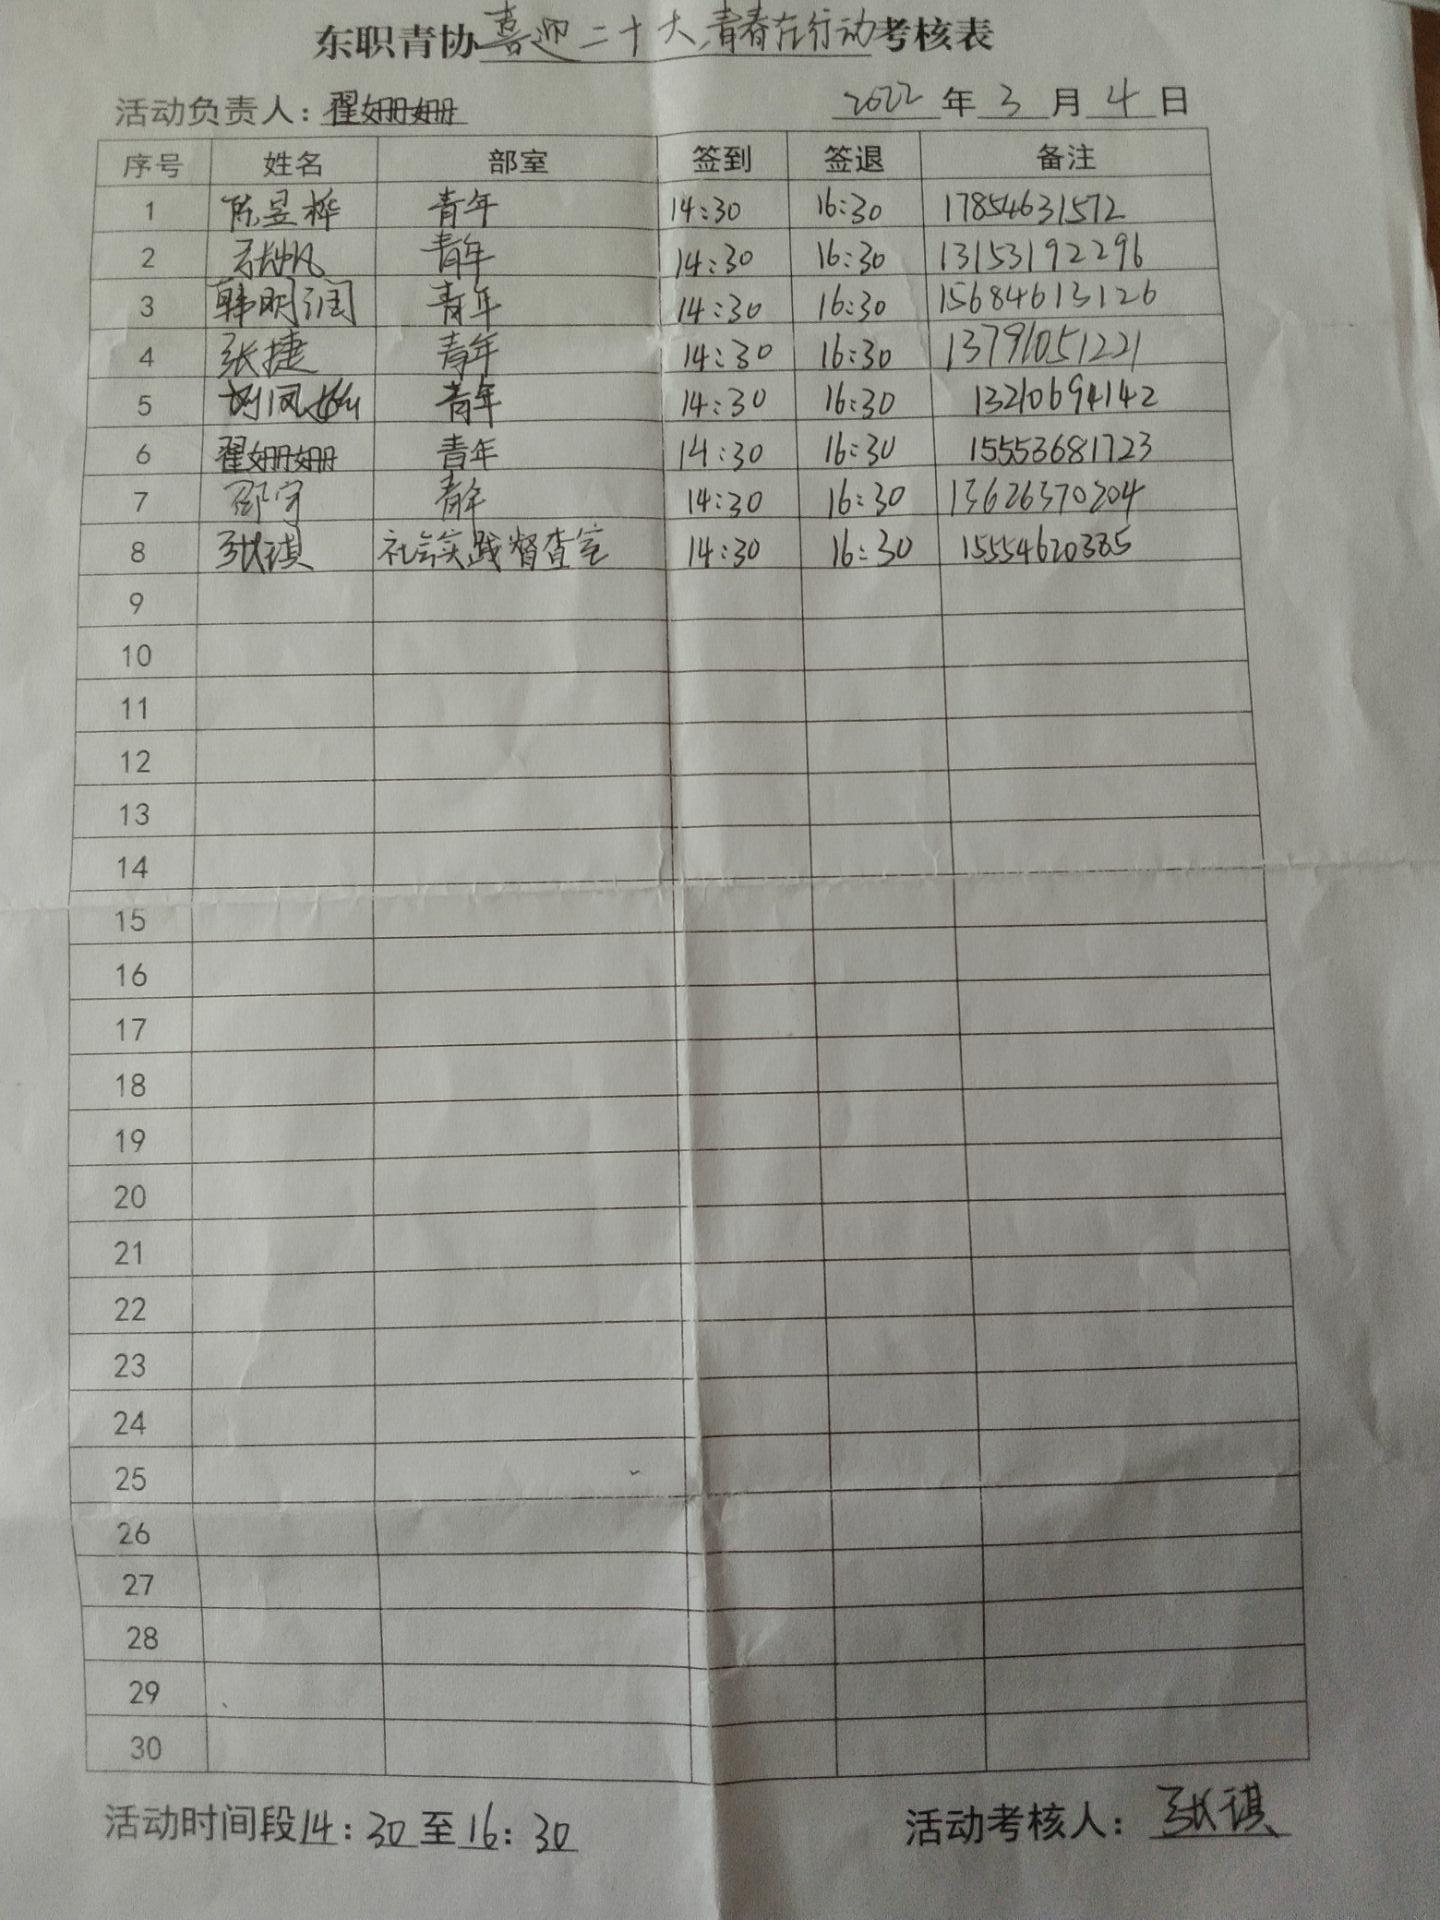 东职青协喜迎二十大,青春在行动考核表
活动负责人：翟姗姗 2022年3月4日
序号 姓名 部室 签到 签退 备注
1 陈昱桦 青年 14:30 16:30 17854631572
2 张帆 青年 14:30 16:30 13153192296
3 韩明润 青年 14:30 16:30 15684613126
4 张捷 青年 14:30 16:30 13791051221
5 青年 14:30 16:30 13210694142
6 翟姗姗 青年 14:30 16:30 15553681723
7 邵宇 青年 14:30 16:30 13626370204
8 张祺 社会实践督查室 14:30 16:30 15554620385
9
10
11
12
13
14
15
16
17
18
19
20
21
22
23
24
25
26
27
28
29
30
活动时间段14：30至16：30 活动考核人：张祺